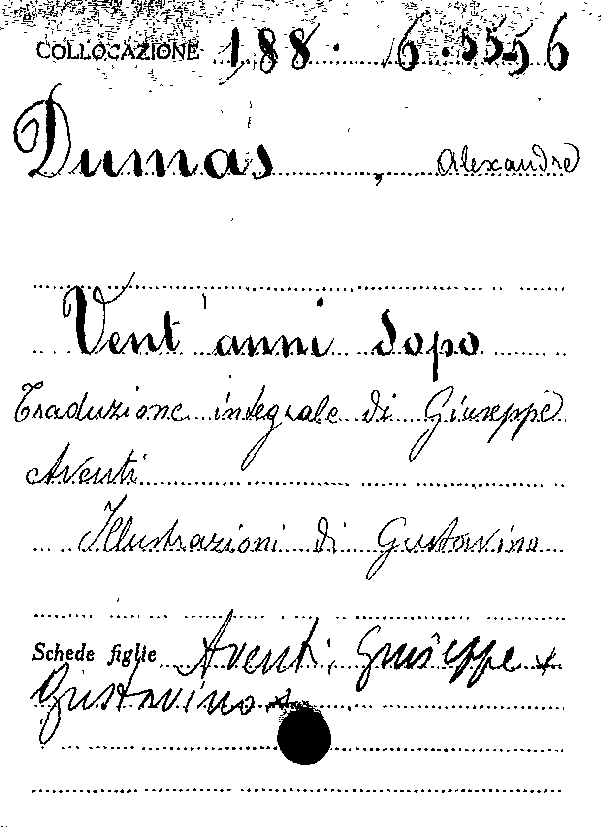 COLLOCAZIONE 188. 6.5556
Dumas, Alexandre
Vent'anni dopo
Traduzione integrale di Giuseppe
Aventi
Illustrazioni di Gustavino
Schede figlie Aventi, Giuseppe +
Gustavino +